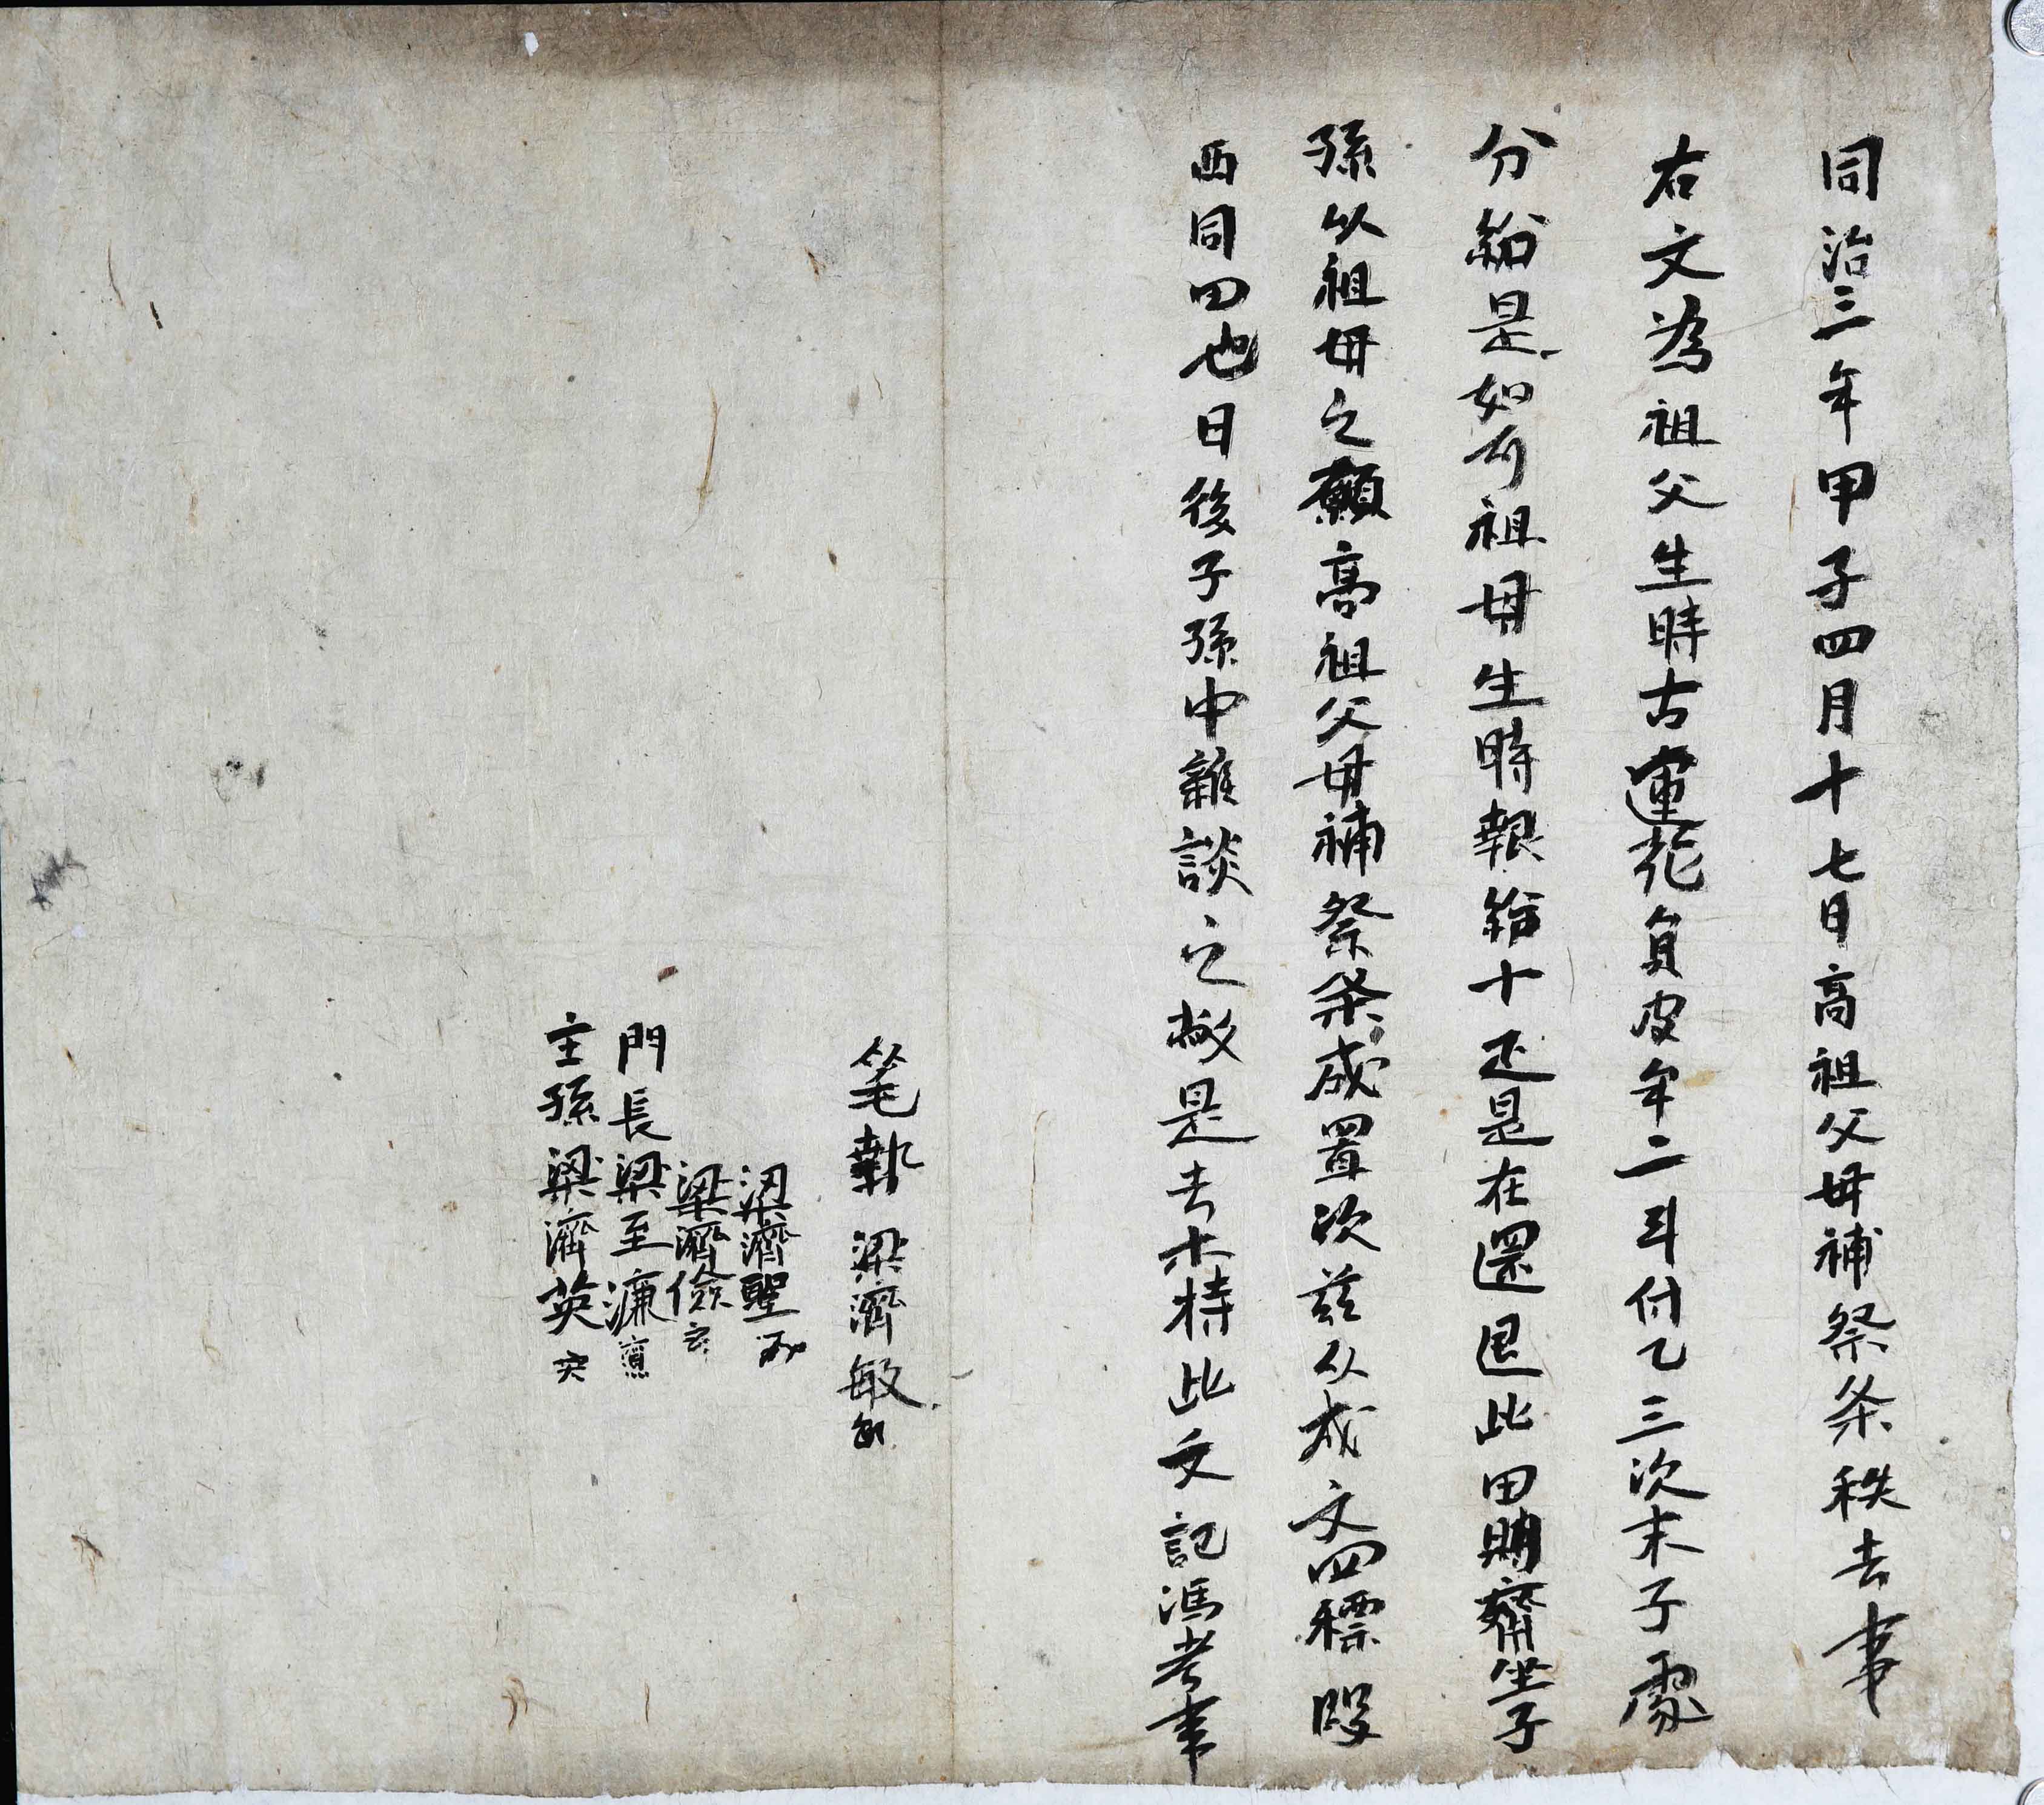 同治三年甲子四月十七日高祖父母補祭条秩去事
右文為祖父生時古運花員皮年二斗付乙三次末子處
分給是如可祖母生時報給十疋是在還退此田明齊坐子
孫以祖母之願高祖父母補祭条成置次茲以成文四標段
西同四也日後子孫中雜談之敝是去木持此文記馮考事
笔執 梁濟敏
梁濟聖
梁濟儉
門長梁至濂
主孫梁濟英